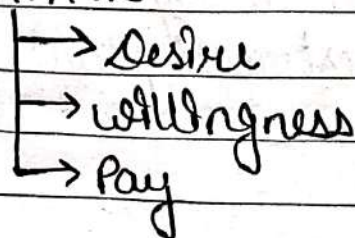 Desire
Willingness
Pay